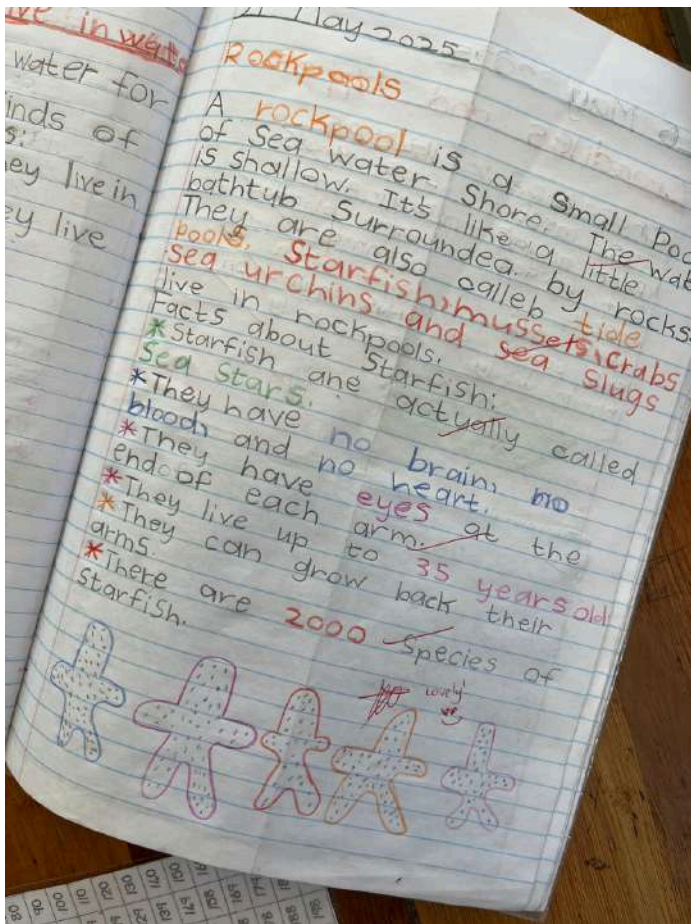 ve in wate
water for
inds of
s:
ey live in
ey live
May 2025
Rockpools
A rockpool is a small poo
of sea water shore. The wat
is shallow. It's like a little
bathtub surrounded by rocks.
They are also calleb tide
pools. Starfish, mussels, crabs
sea urchins and sea slugs
live in rockpools.
Facts about Starfish:
*Starfish are actually called
Sea Stars.
*They have no brain, no
blood, and no heart.
*They have eyes at the
end of each arm.
*They live up to 35 years old
*They can grow back their
arms.
*There are 2000 species of
starfish.
lovely